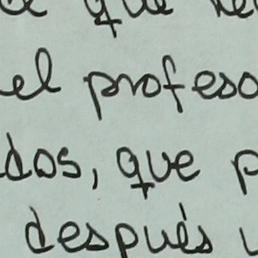 que
el profeso
dos, que p
después